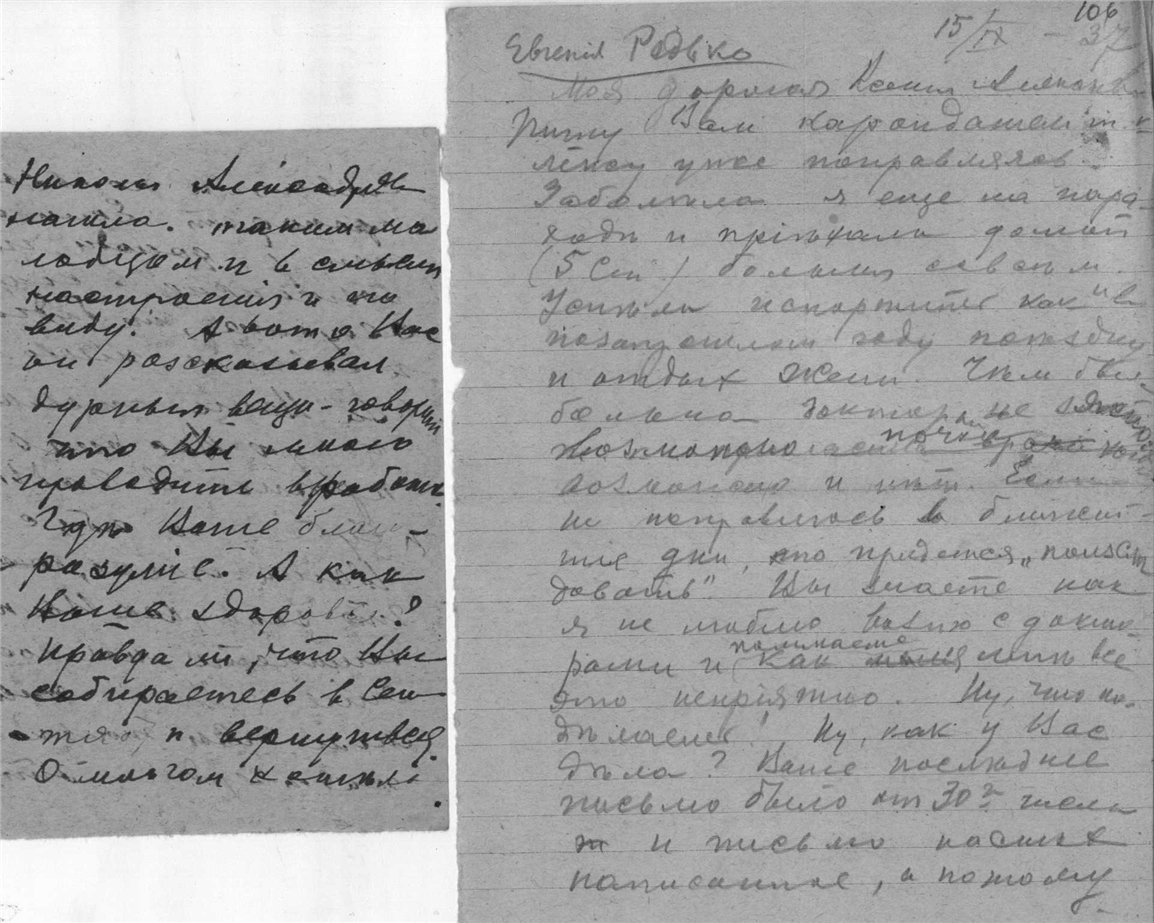 Николая Александров
нашла. таким мо
лодцом и в смысле
настроения и по
виду. А вот о Вас
он рассказывал
дурныя вещи - говорит
что Вы много
проводите в работе
Где Ваше благо-
разумiе. А как
Ваше здоровье?
Правда ли, что Вы
собираетесь в Сен
и вернуться
О многом хотѣла
106
15/IX - 37
Евгенiя Редько
Моя дорогая Ксения
Пишу Вам карандашем т. к.
лежу уже поправляясь
Заболѣла я еще на паро-
ходѣ и прiѣхала домой
(5 Сен) больная совсѣм.
Успѣла испортить как и в
позапрошлом году поѣздку
и отдых Жени. Чѣм была
больна доктор не знает
Возможно почки
возможно и нѣт. Если
не поправлюсь в ближай-
шие дни, то придется „
довать". Вы знаете как
я не люблю возню с докто
рами и понимаете как мнѣ всё
это непрiятно. Ну, что по-
дѣлаешь! Ну, как у Вас
дѣла? Ваше последнее
письмо было от 30го числа
и письмо наспех
написанное, а потому